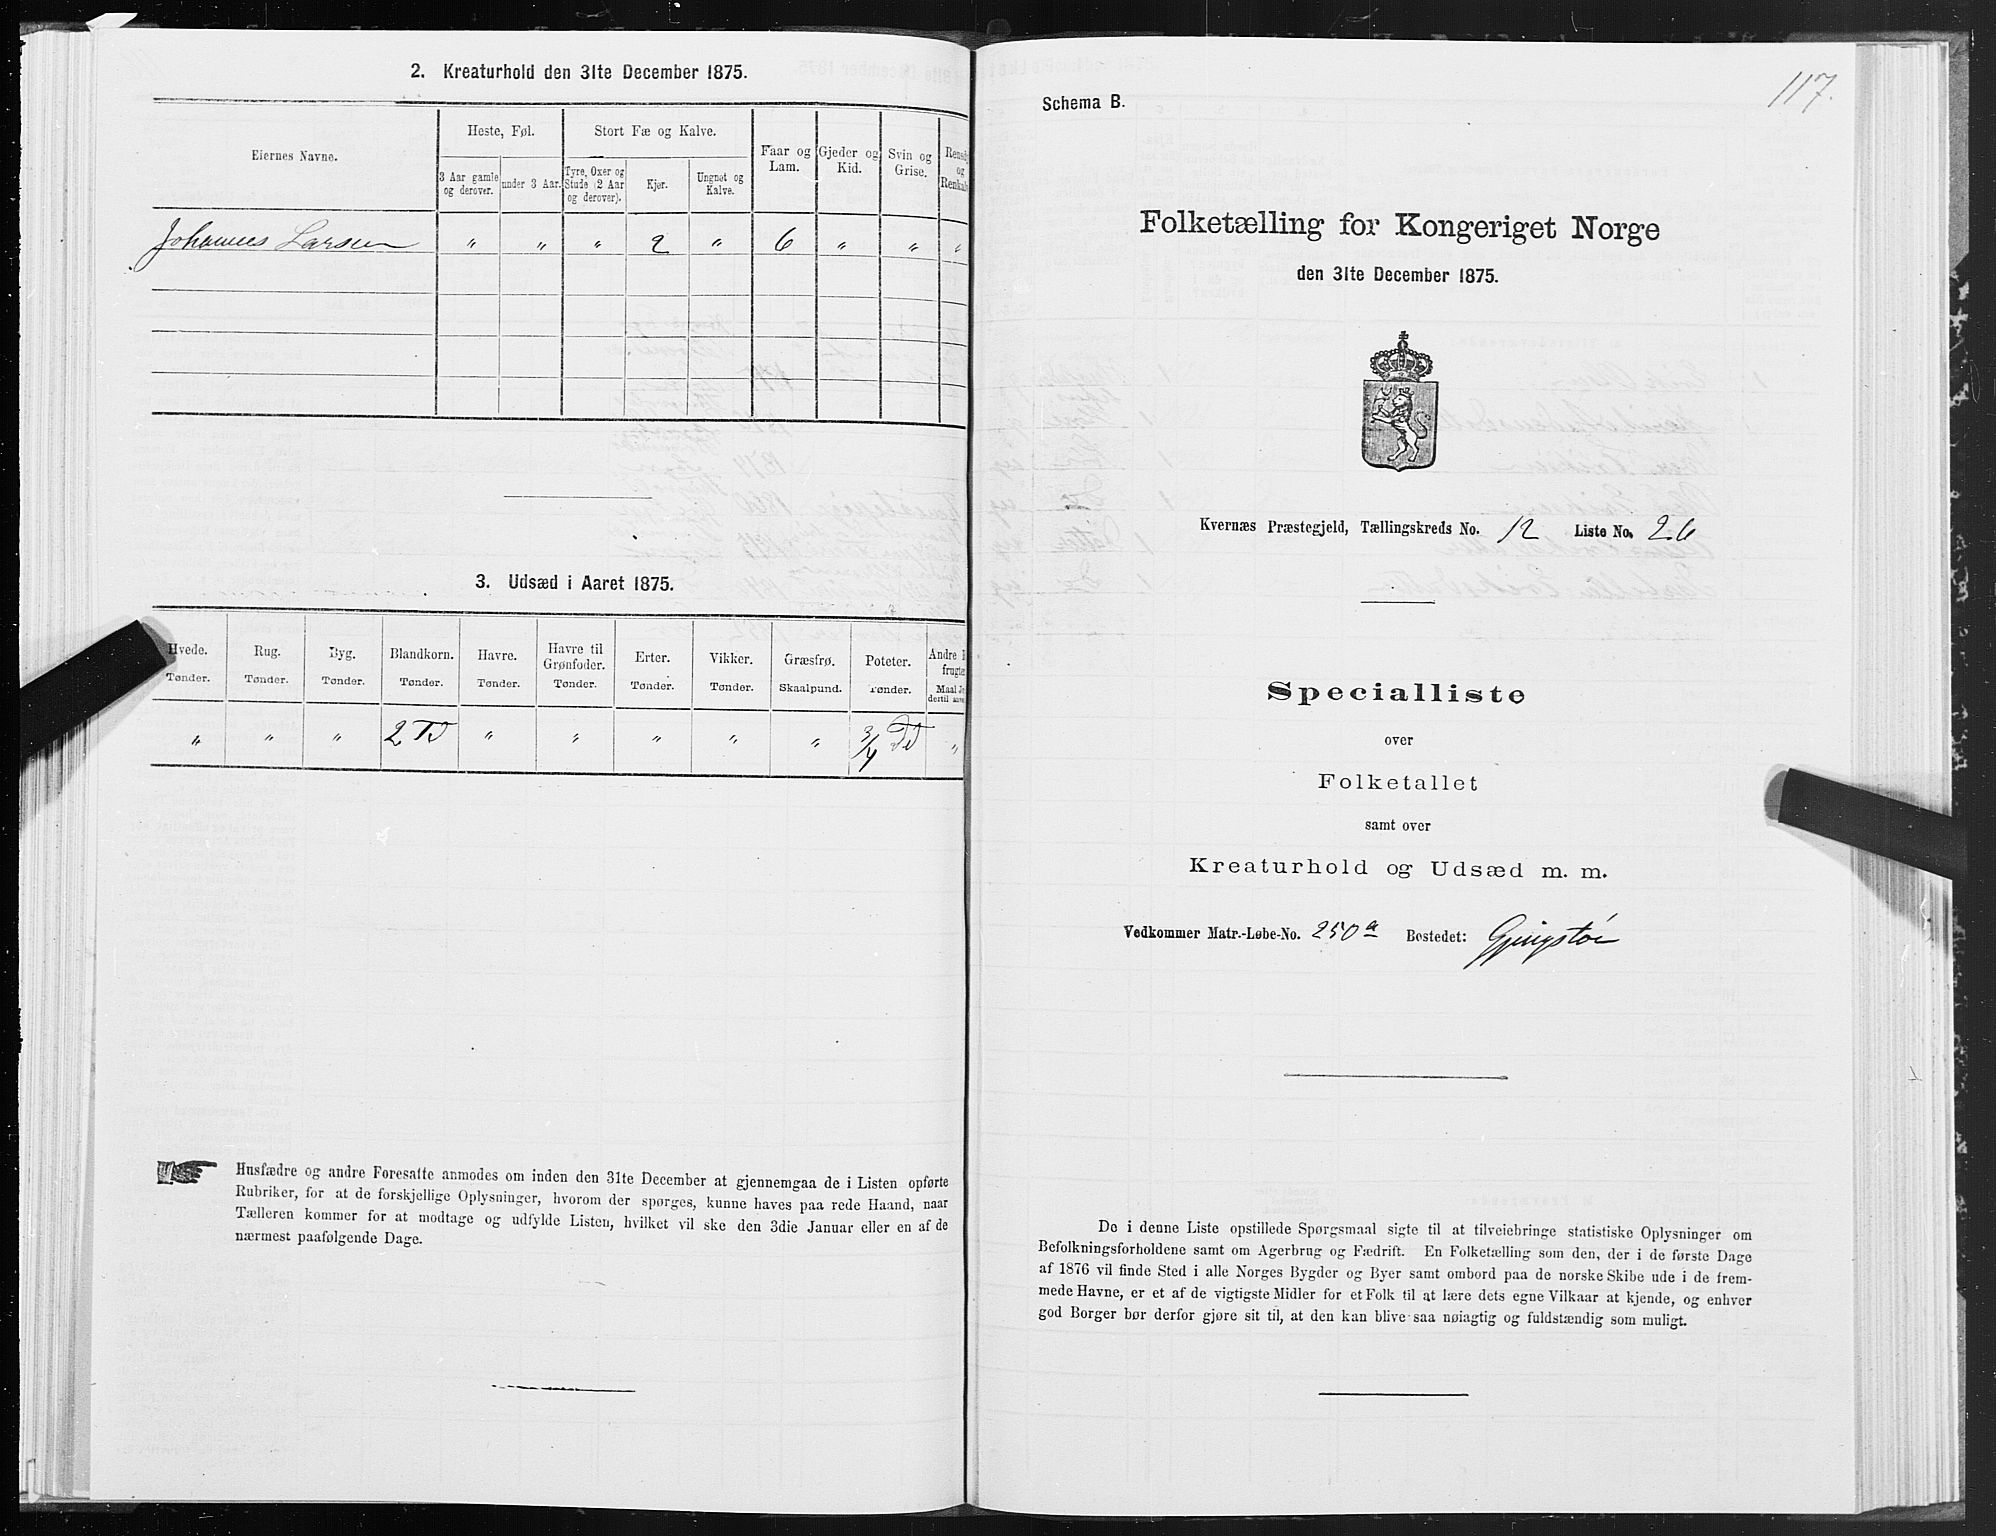 2. Kreaturhold den 31te December 1875.
Eiernes Navne.
Heste, Føl.
Stort Fæ og Kalve.
Faar og Lam.
Gjeder og Kid.
Svin og Grise.
og
3 Aar gamle og derover.
under 3 Aar.
Tyre, Oxer og Stude (2 Aar og derover).
Kjør.
Ungnøt og Kalve.
Johannes Larsen " " " 2 " 6 " " "
3. Udsæd i Aaret 1875.
Hvede. Rug. Byg. Blandkorn. Havre. Havre til Grønfoder. Erter. Vikker. Græsfrø. Poteter. Andre
Tønder. Tønder. Tønder. Tønder. Tønder. Tønder. Tønder. Tønder. Skaalpund. Tønder. Maal
" " " 2 Td " " " " " 3/4 Td "
Husfædre og andre Foresatte anmodes om inden den 31te December at gjennemgaa de i Listen opførte
Rubriker, for at de forskjellige Oplysninger, hvorom der spørges, kunne haves paa rede Haand, naar
Tælleren kommer for at modtage og udfylde Listen, hvilket vil ske den 3die Januar eller en af de
nærmest paafølgende Dage.
117.
Schema B.
Folketælling for Kongeriget Norge
den 31te December 1875.
Kvernæs Præstegjeld, Tællingskreds No. 12 Liste No. 26
Specialliste
over
Folketallet
samt over
Kreaturhold og Udsæd m. m.
Vedkommer Matr.-Løbe-No. 250 a Bostedet: Gjengstø
De i denne Liste opstillede Spørgsmaal sigte til at tilveiebringe statistiske Oplysninger om
Befolkningsforholdene samt om Agerbrug og Fædrift. En Folketælling som den, der i de første Dage
af 1876 vil finde Sted i alle Norges Bygder og Byer samt ombord paa de norske Skibe ude i de frem-
mede Havne, er et af de vigtigste Midler for et Folk til at lære dets egne Vilkaar at kjende, og enhver
god Borger bør derfor gjøre sit til, at den kan blive saa nøiagtig og fuldstændig som muligt.